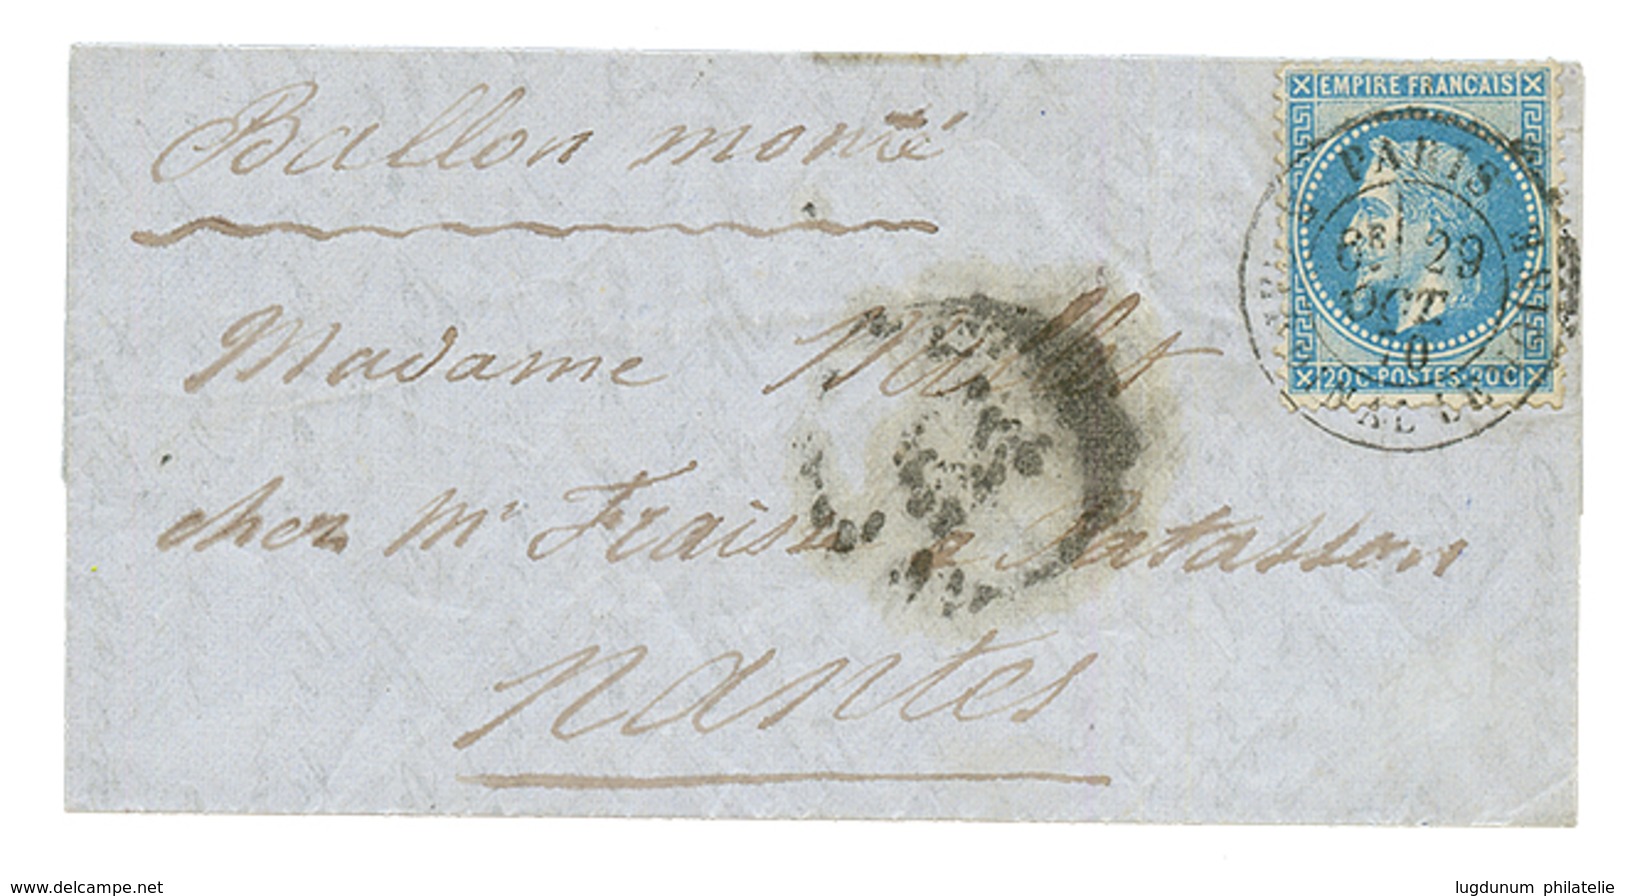 Ballon monté
EMPIRE FRANCAIS
PARIS
6E 29
OCT
70
20C POSTES 20C
Madame
chez Mr Fraisse
Nantes
www.delcampe.net
lugdunum philatelie